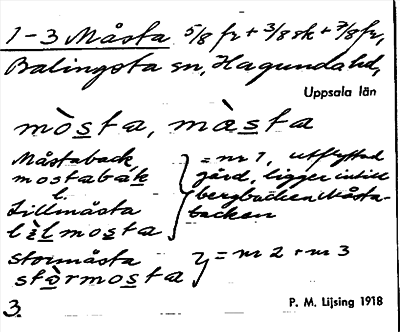 1-3 Måsta 5/8 fr + 3/8 sk + 7/8 fr,
Balingsta sn, Hagunda hd,
Uppsala län
mòsta, màsta
Måstaback = nr 1, utflyttad
mostabàk gård, ligger intill
l. bergbacken Måsta-
Lillmåsta backen
lìlmosta
Stormåsta = nr 2 + nr 3
stòrmosta
3. P. M. Lijsing 1918